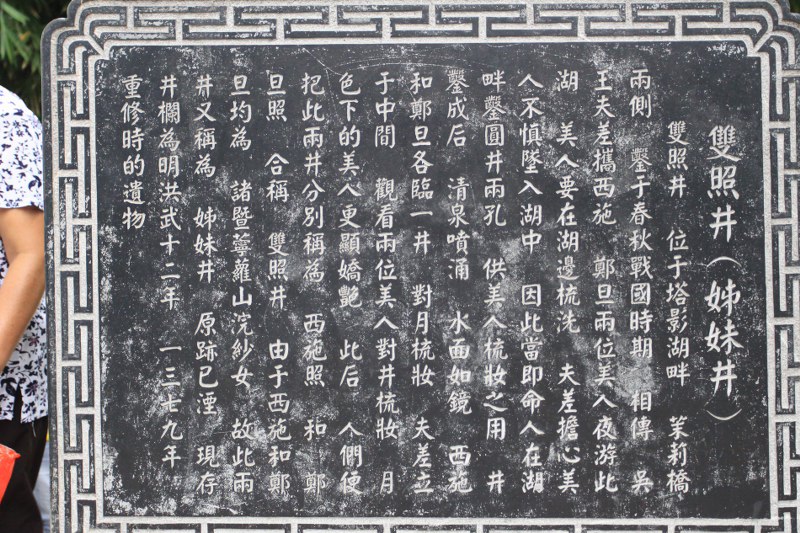 雙照井(姊妹井)
雙照井 位于塔影湖畔 茉莉橋
兩側 鑿于春秋戰國時期 相傳 吳
王夫差攜西施 鄭旦兩位美人夜游此
湖 美人要在湖邊梳洗 夫差擔心美
人不慎墜入湖中 因此當即命人在湖
畔鑿圓井兩孔 供美人梳妝之用 井
鑿成后 清泉噴涌 水面如鏡 西施
和鄭旦各臨一井 對月梳妝 夫差立
于中間 觀看兩位美人對井梳妝 月
色下的美人更顯嬌艷 此后 人們便
把此兩井分別稱為 西施照 和 鄭
旦照 合稱 雙照井 由于西施和鄭
旦均為 諸暨薴蘿山浣紗女 故此兩
井又稱為 姊妹井 原跡已湮 現存
井欄為明洪武十二年 一三七九年
重修時的遺物